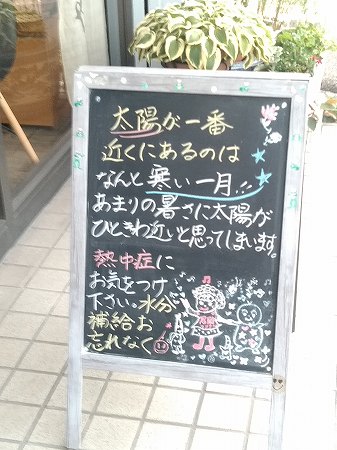 太陽が一番
近くにあるのは
なんと寒い一月!!
あまりの暑さに太陽が
ひときわ近いと思ってしまいます。
熱中症に
お気をつけ
下さい。水分
補給お
忘れなく